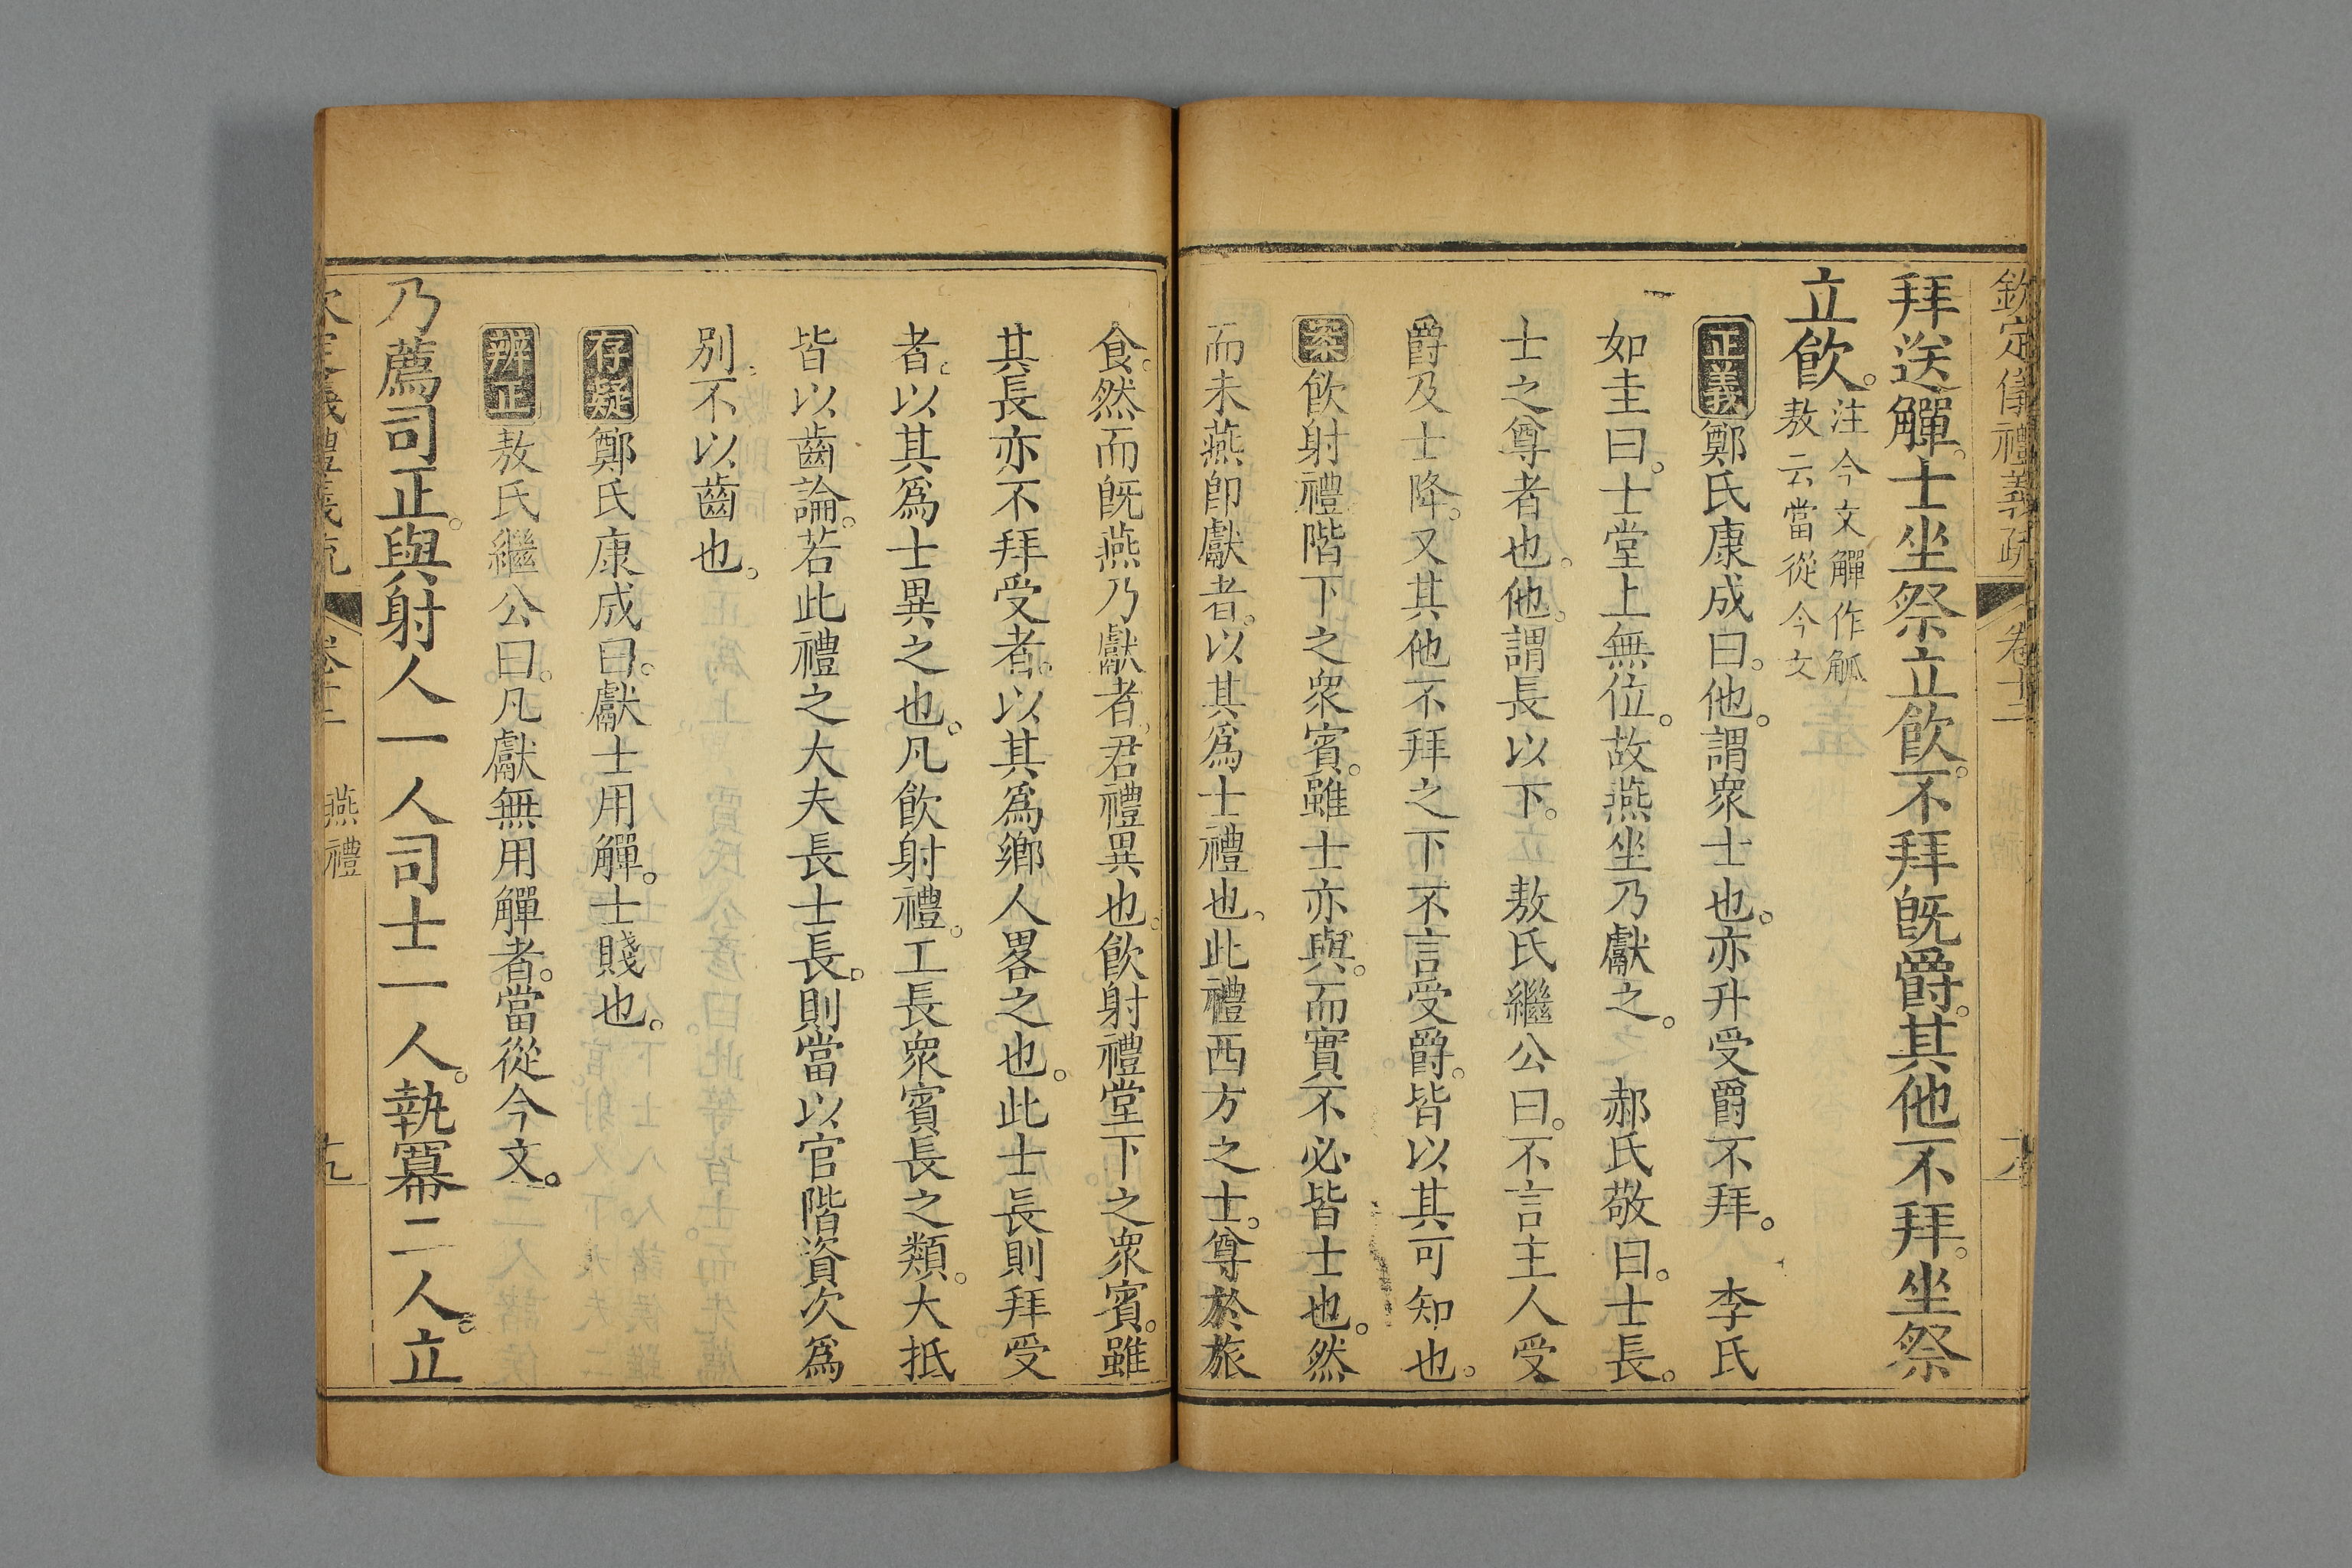 欽定儀禮義疏 卷十二
拜送觶。士坐祭立飲。不拜既爵。其他不拜。坐祭
立飲。注今文觶作觚
敖云當從今文
正義鄭氏康成曰。他。謂衆士也。亦升受爵不拜。 李氏
如圭曰。士堂上無位。故燕坐乃獻之。 郝氏敬曰。士長。
士之尊者也。他。謂長以下。 敖氏繼公曰。不言主人受
爵及士降。又其他不拜之下不言受爵。皆以其可知也。
案飲射禮階下之衆賓。雖士亦與。而實不必皆士也。然
而未燕卽獻者。以其爲士禮也。此禮西方之士。尊於旅
食。然而旣燕乃獻者。君禮異也。飲射禮堂下之衆賓。雖
其長亦不拜受者。以其爲鄉人畧之也。此士長則拜受
者。以其爲士異之也。凡飲射禮。工長衆賓長之類。大抵
皆以齒論。若此禮之大夫長士長。則當以官階資次爲
別。不以齒也。
存疑鄭氏康成曰。獻士用觶。士賤也。
辨正敖氏繼公曰。凡獻無用觶者。當從今文。
乃薦司正。與射人一人司士一人。執冪二人。立
欽定儀禮義疏 卷十二 燕禮 十九